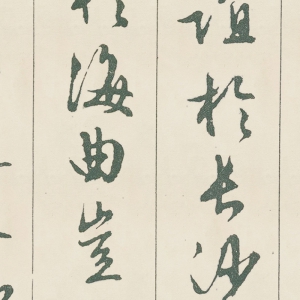 誼於長沙
於海曲豈